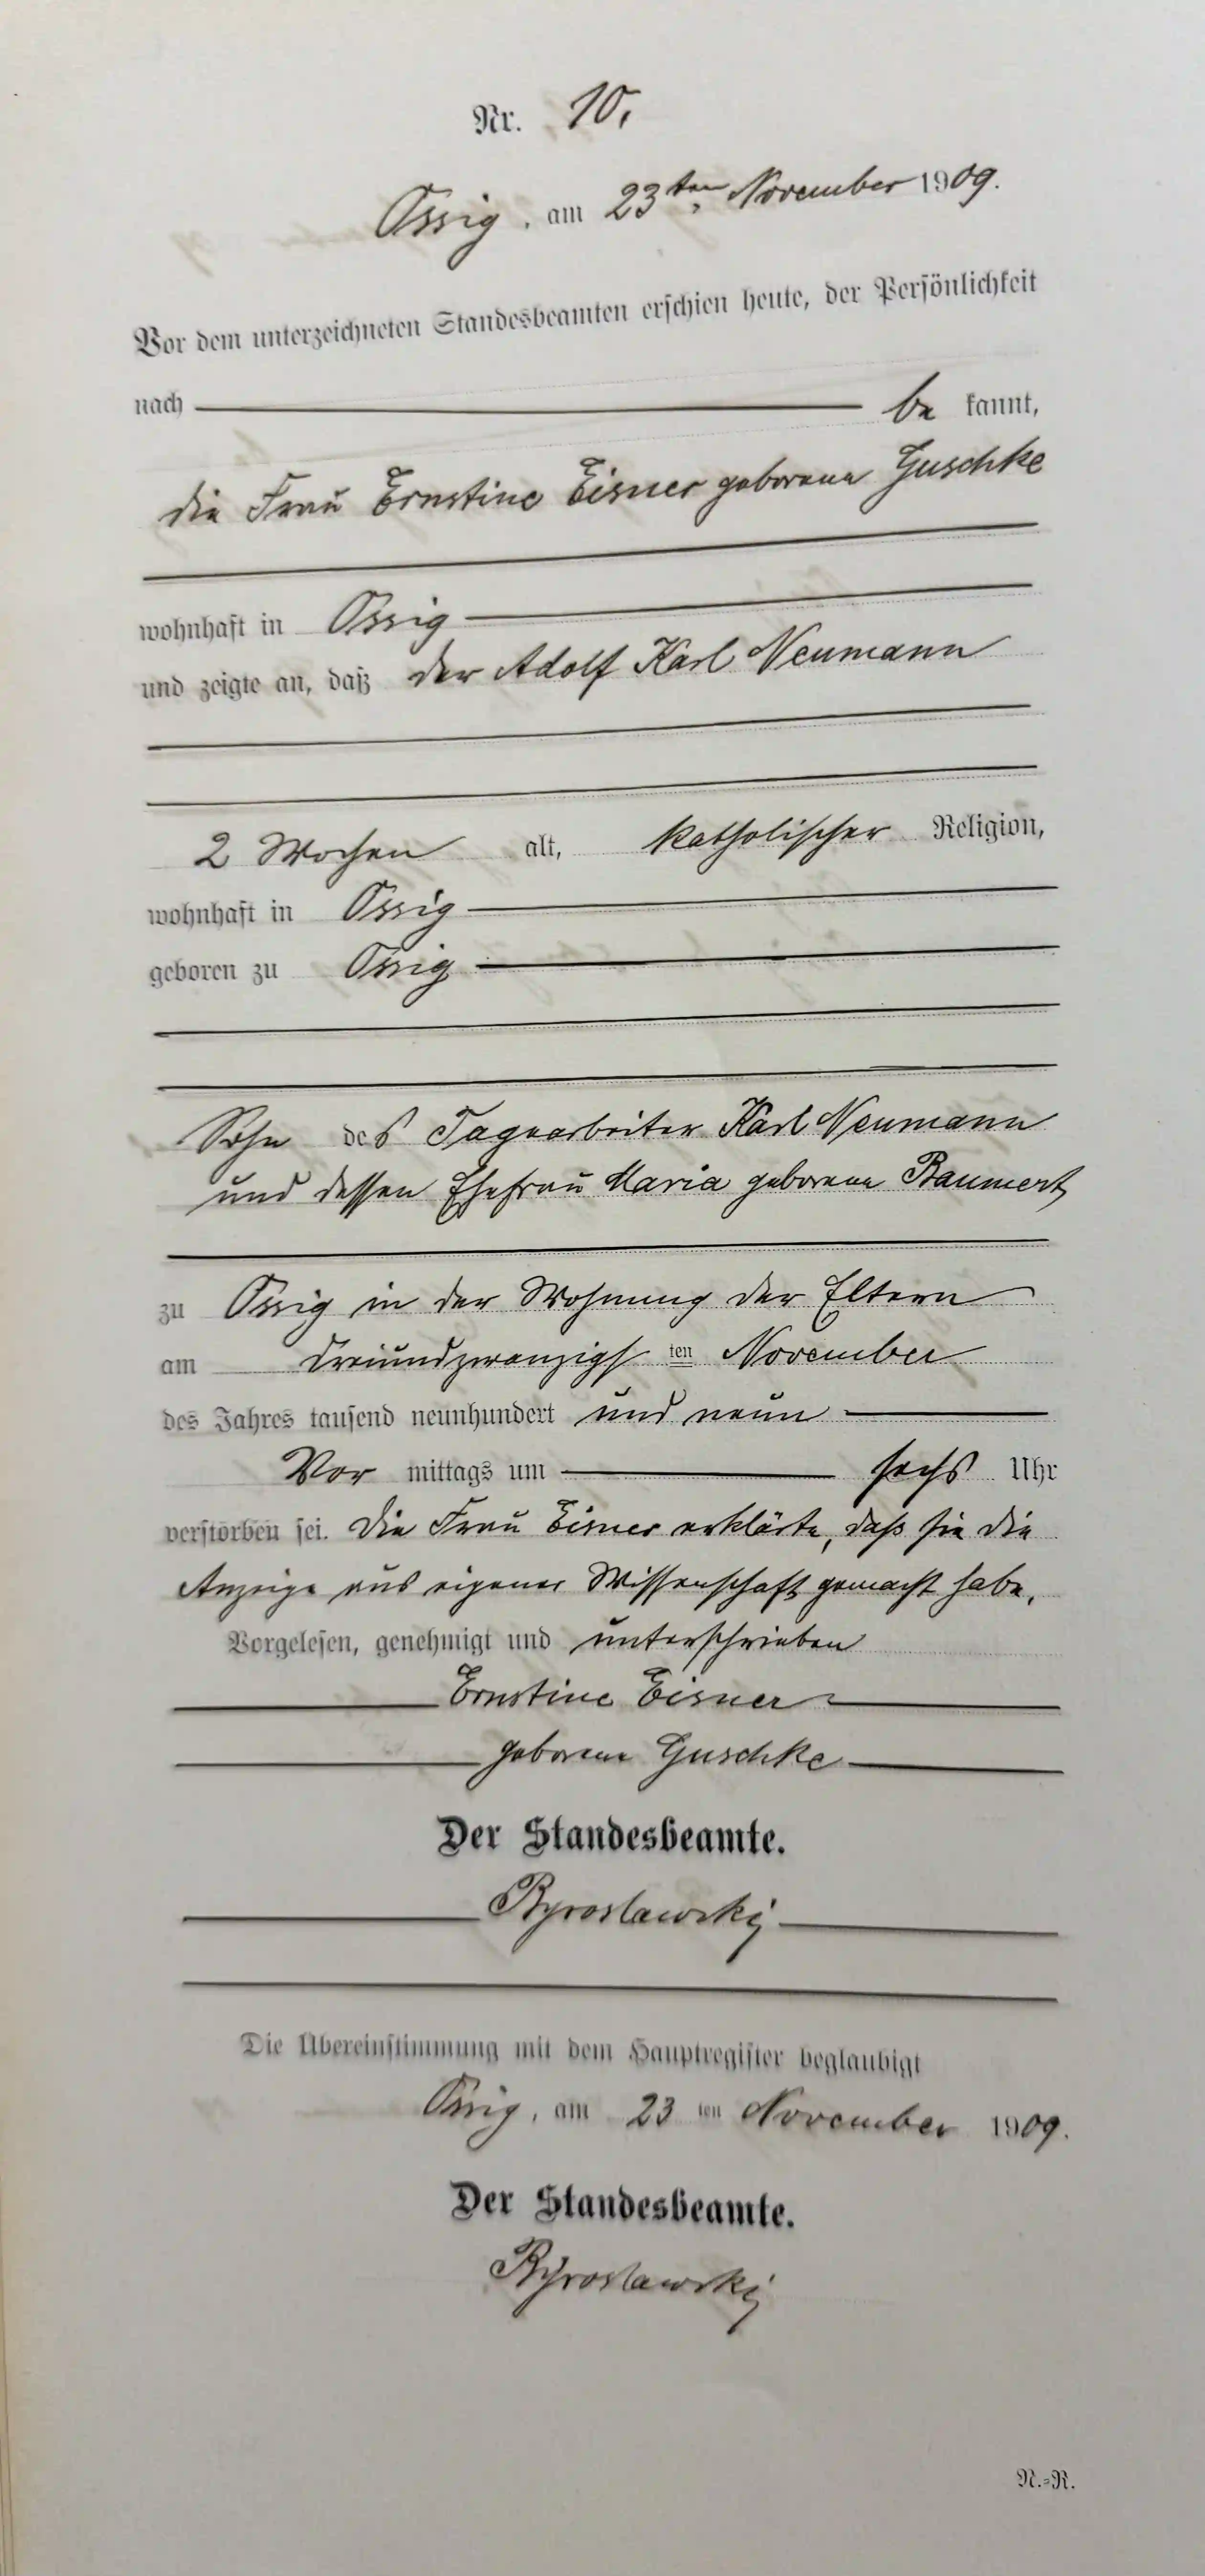 Nr. 10.
Ossig, am 23ten November 1909.
Vor dem unterzeichneten Standesbeamten erschien heute, der Persönlichkeit
nach be kannt,
die Frau Ernstine Eisner geborene Guschke
wohnhaft in Ossig
und zeigte an, daß der Adolf Karl Neumann
2 Wochen alt, katholischer Religion,
wohnhaft in Ossig
geboren zu Ossig
Sohn des Tagearbeiter Karl Neumann
und dessen Ehefrau Maria geborene Baumert
zu Ossig in der Wohnung der Eltern
am dreiundzwanzigsten November
des Jahres tausend neunhundert und neun
Vor mittags um sechs Uhr
verstorben sei. Die Frau Eisner erklärte, daß sie die
Anzeige aus eigener Wissenschaft gemacht habe.
Vorgelesen, genehmigt und unterschrieben
Ernstine Eisner
geborene Guschke
Der Standesbeamte.
Die Übereinstimmung mit dem Hauptregister beglaubigt
Ossig, am 23 ten November 1909.
Der Standesbeamte.
N.=R.